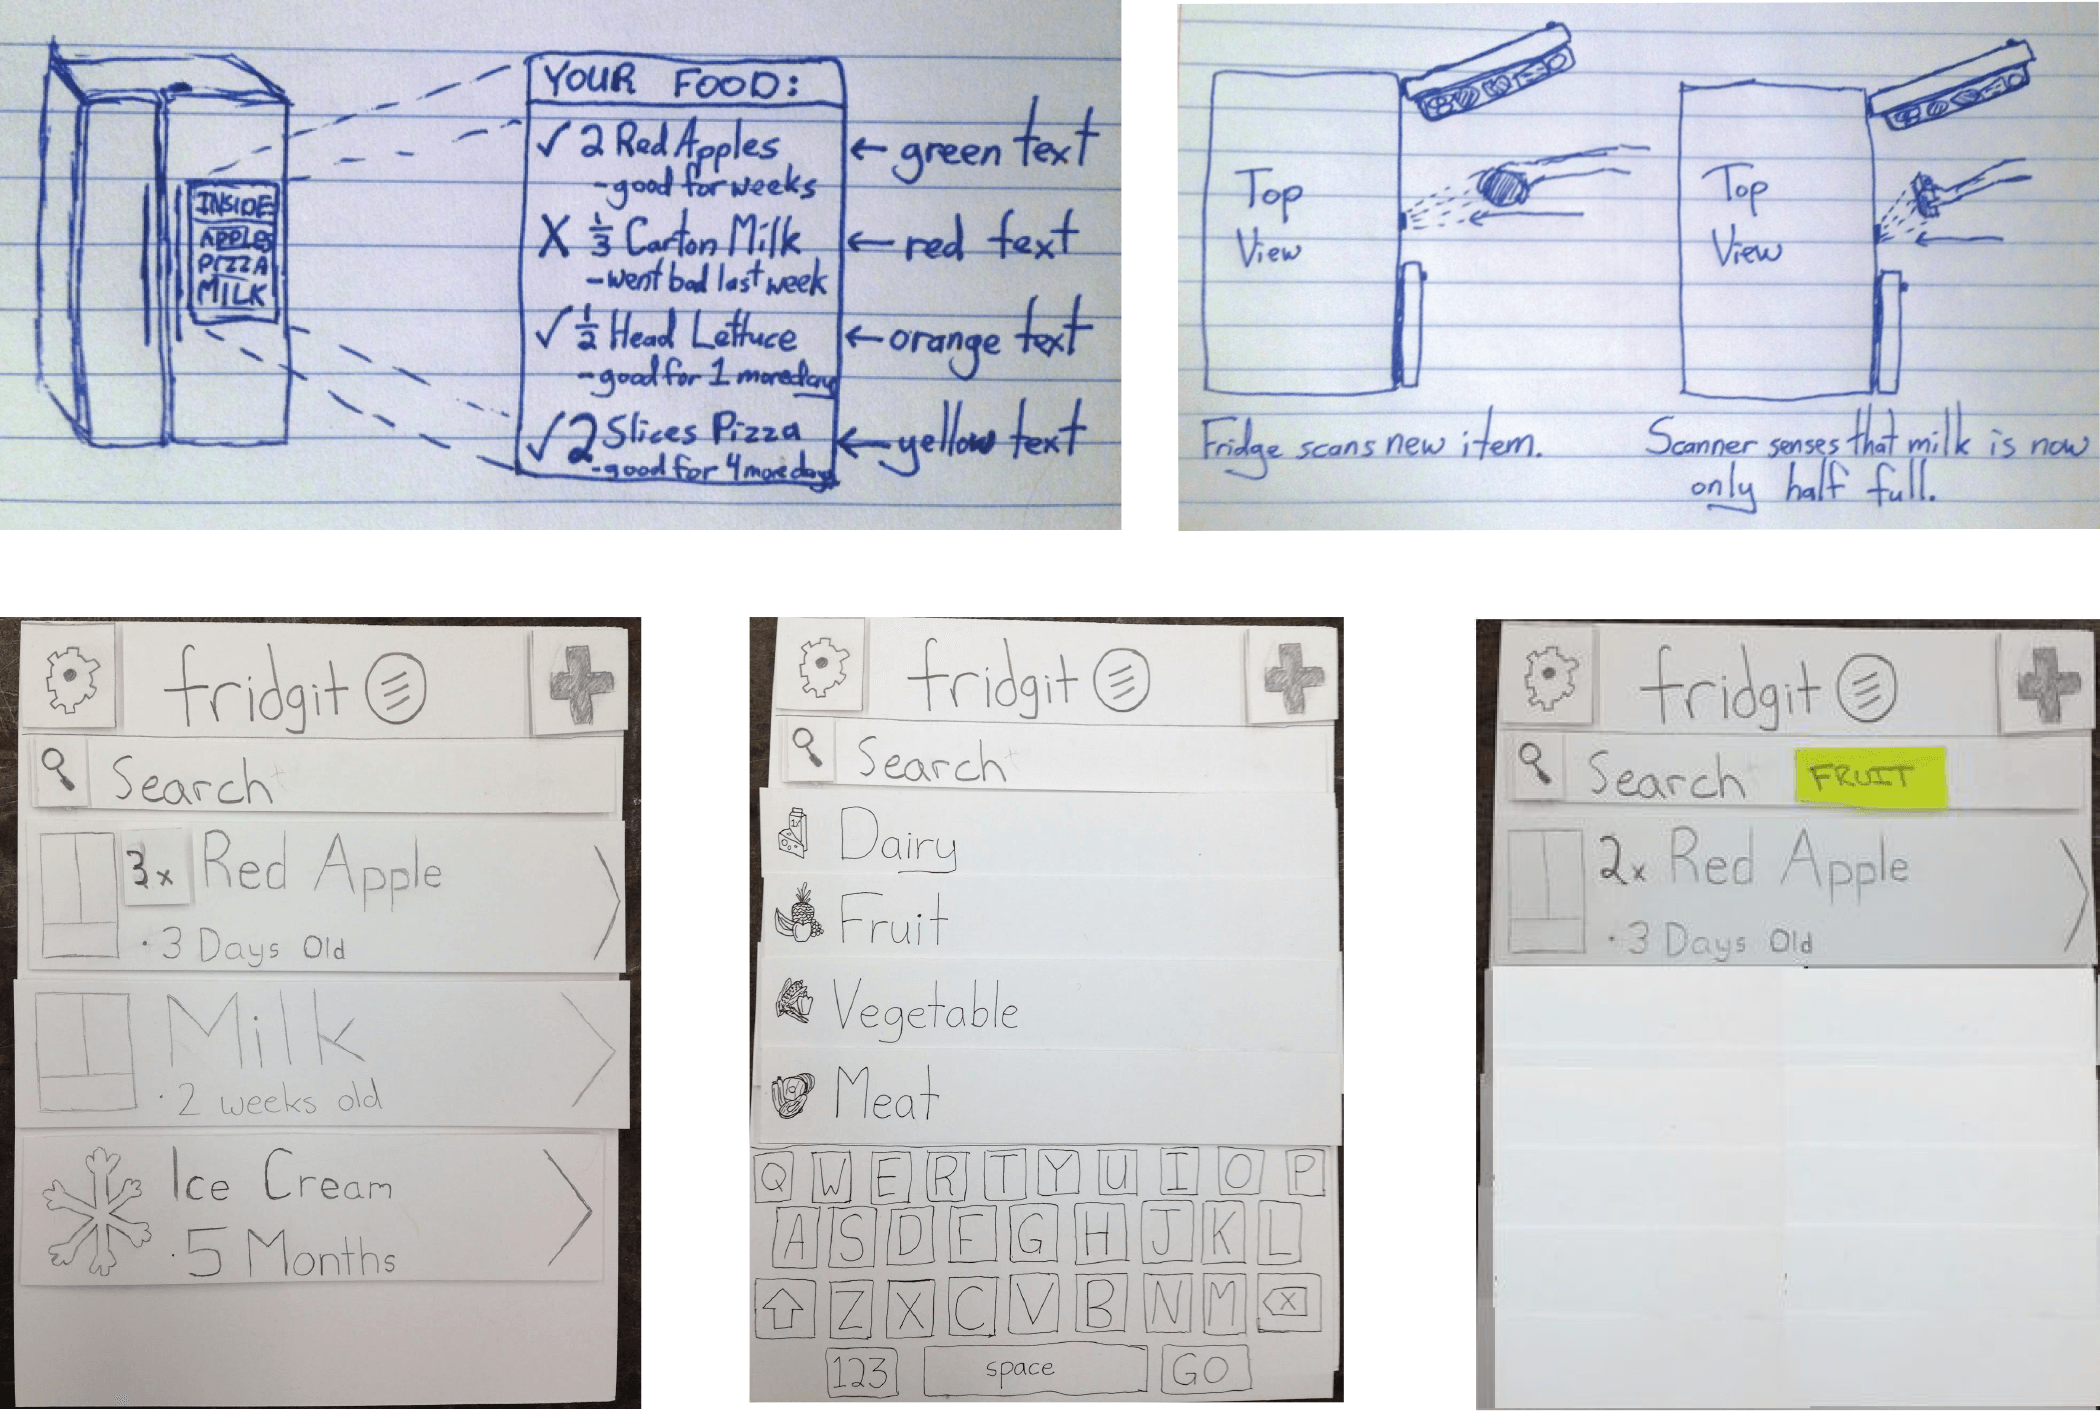 INSIDE
APPLES
PIZZA
MILK
YOUR FOOD:
✓ 2 Red Apples
-good for weeks
← green text
X 1/3 Carton Milk
-went bad last week
← red text
✓ 1/2 Head Lettuce
-good for 1 more day
← orange text
✓ 2 Slices Pizza
-good for 4 more days
← yellow text
Top
View
Fridge scans new item.
Top
View
Scanner senses that milk is now
only half full.
fridgit
Search
3x Red Apple
· 3 Days Old
Milk
· 2 weeks old
Ice Cream
· 5 Months
fridgit
Search
Dairy
Fruit
Vegetable
Meat
Q W E R T Y U I O P
A S D F G H J K L
Z X C V B N M X
123 space GO
fridgit
Search FRUIT
2x Red Apple
· 3 Days Old